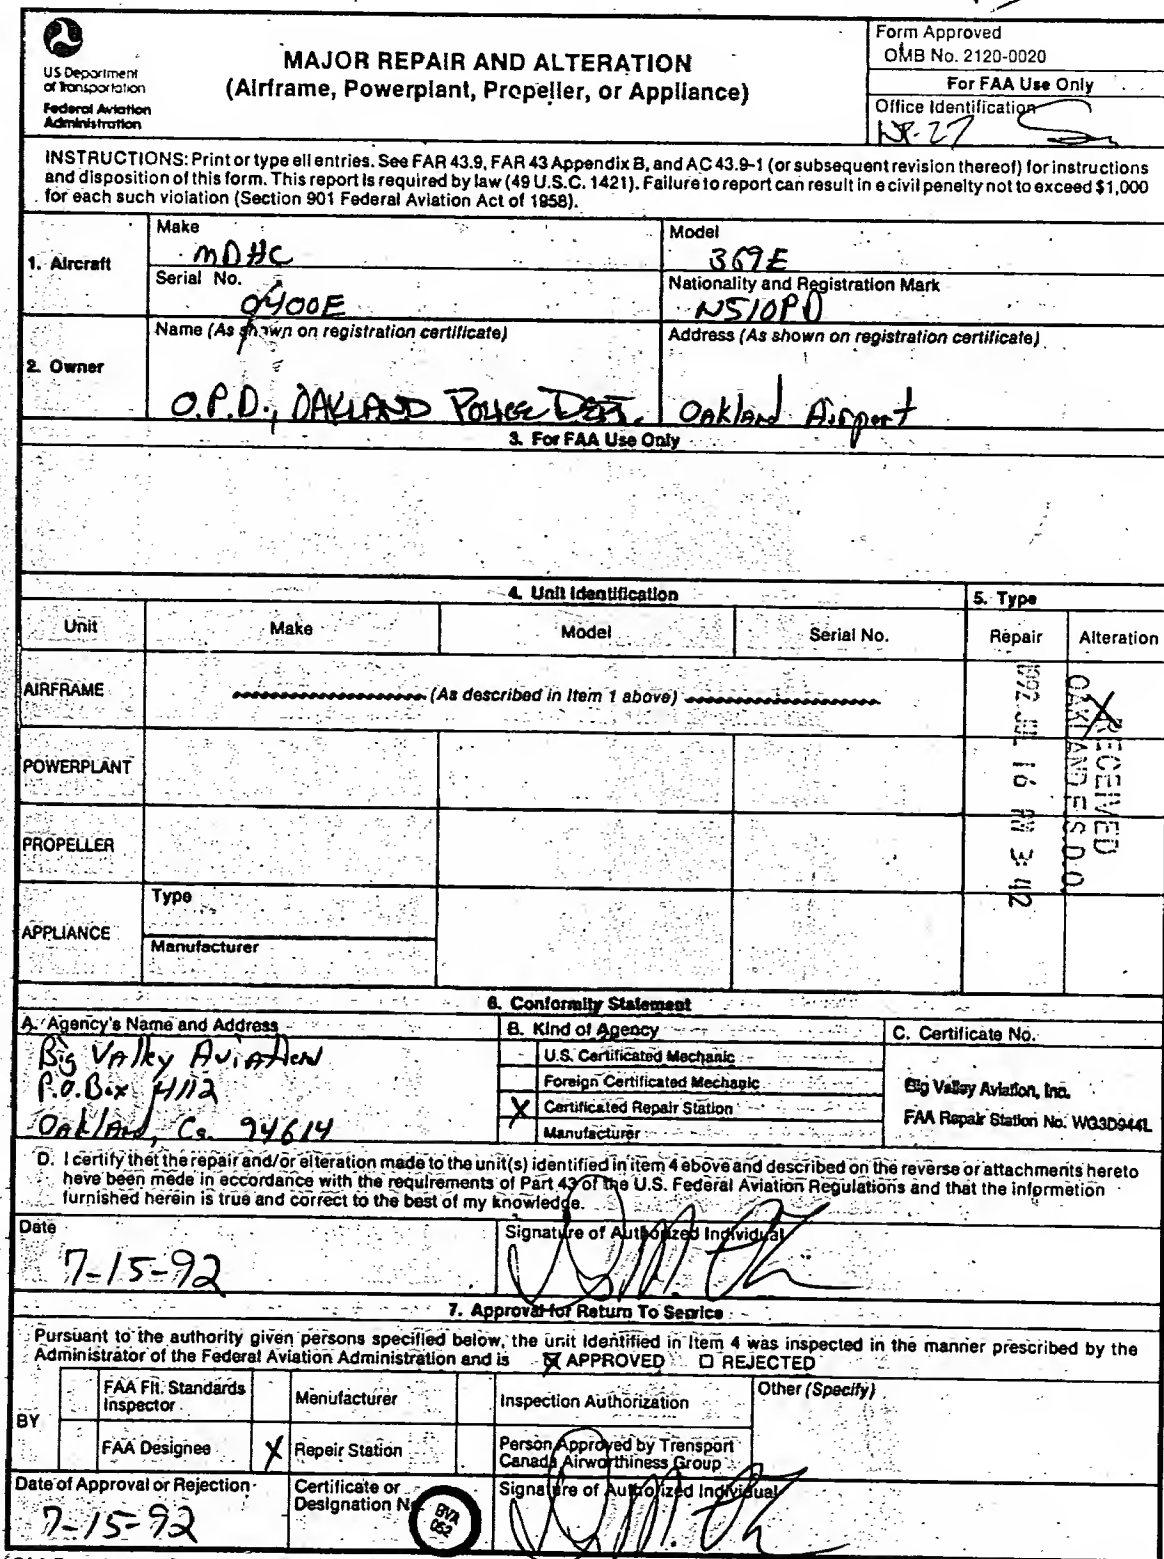 US Department
of Transportation
Federal Aviation
Administration
MAJOR REPAIR AND ALTERATION
(Airframe, Powerplant, Propeller, or Appliance)
Form Approved
OMB No. 2120-0020
For FAA Use Only
Office Identification
INSTRUCTIONS: Print or type all entries. See FAR 43.9, FAR 43 Appendix B, and AC 43.9-1 (or subsequent revision thereof) for instructions
and disposition of this form. This report is required by law (49 U.S.C. 1421). Failure to report can result in a civil penalty not to exceed $1,000
for each such violation (Section 901 Federal Aviation Act of 1958).
1. Aircraft
Make
MDHC
Model
369E
Serial No.
0400E
Nationality and Registration Mark
N510PD
2. Owner
Name (As shown on registration certificate)
O.P.D., OAKLAND POLICE DEPT.
Address (As shown on registration certificate)
OAKLAND Airport
3. For FAA Use Only
4. Unit Identification
5. Type
Unit
Make
Model
Serial No.
Repair
Alteration
AIRFRAME
(As described in Item 1 above)
X
RECEIVED
OAKLAND F.S.D.O.
1992 JUL 16 3:42
POWERPLANT
PROPELLER
APPLIANCE
Type
Manufacturer
6. Conformity Statement
A. Agency's Name and Address
Big Valley Aviation
P.O. Box 4112
Oakland, Ca. 94614
B. Kind of Agency
U.S. Certificated Mechanic
Foreign Certificated Mechanic
X Certificated Repair Station
Manufacturer
C. Certificate No.
Big Valley Aviation, Inc.
FAA Repair Station No. WG3D944L
D. I certify that the repair and/or alteration made to the unit(s) identified in item 4 above and described on the reverse or attachments hereto
have been made in accordance with the requirements of Part 43 of the U.S. Federal Aviation Regulations and that the information
furnished herein is true and correct to the best of my knowledge.
Date
7-15-92
Signature of Authorized Individual
7. Approval for Return To Service
Pursuant to the authority given persons specified below, the unit identified in Item 4 was inspected in the manner prescribed by the
Administrator of the Federal Aviation Administration and is ☒ APPROVED ☐ REJECTED
BY
FAA Flt. Standards
Inspector
Manufacturer
Inspection Authorization
Other (Specify)
FAA Designee
X Repair Station
Person Approved by Transport
Canada Airworthiness Group
Date of Approval or Rejection
7-15-92
Certificate or
Designation No.
BVA
052
Signature of Authorized Individual